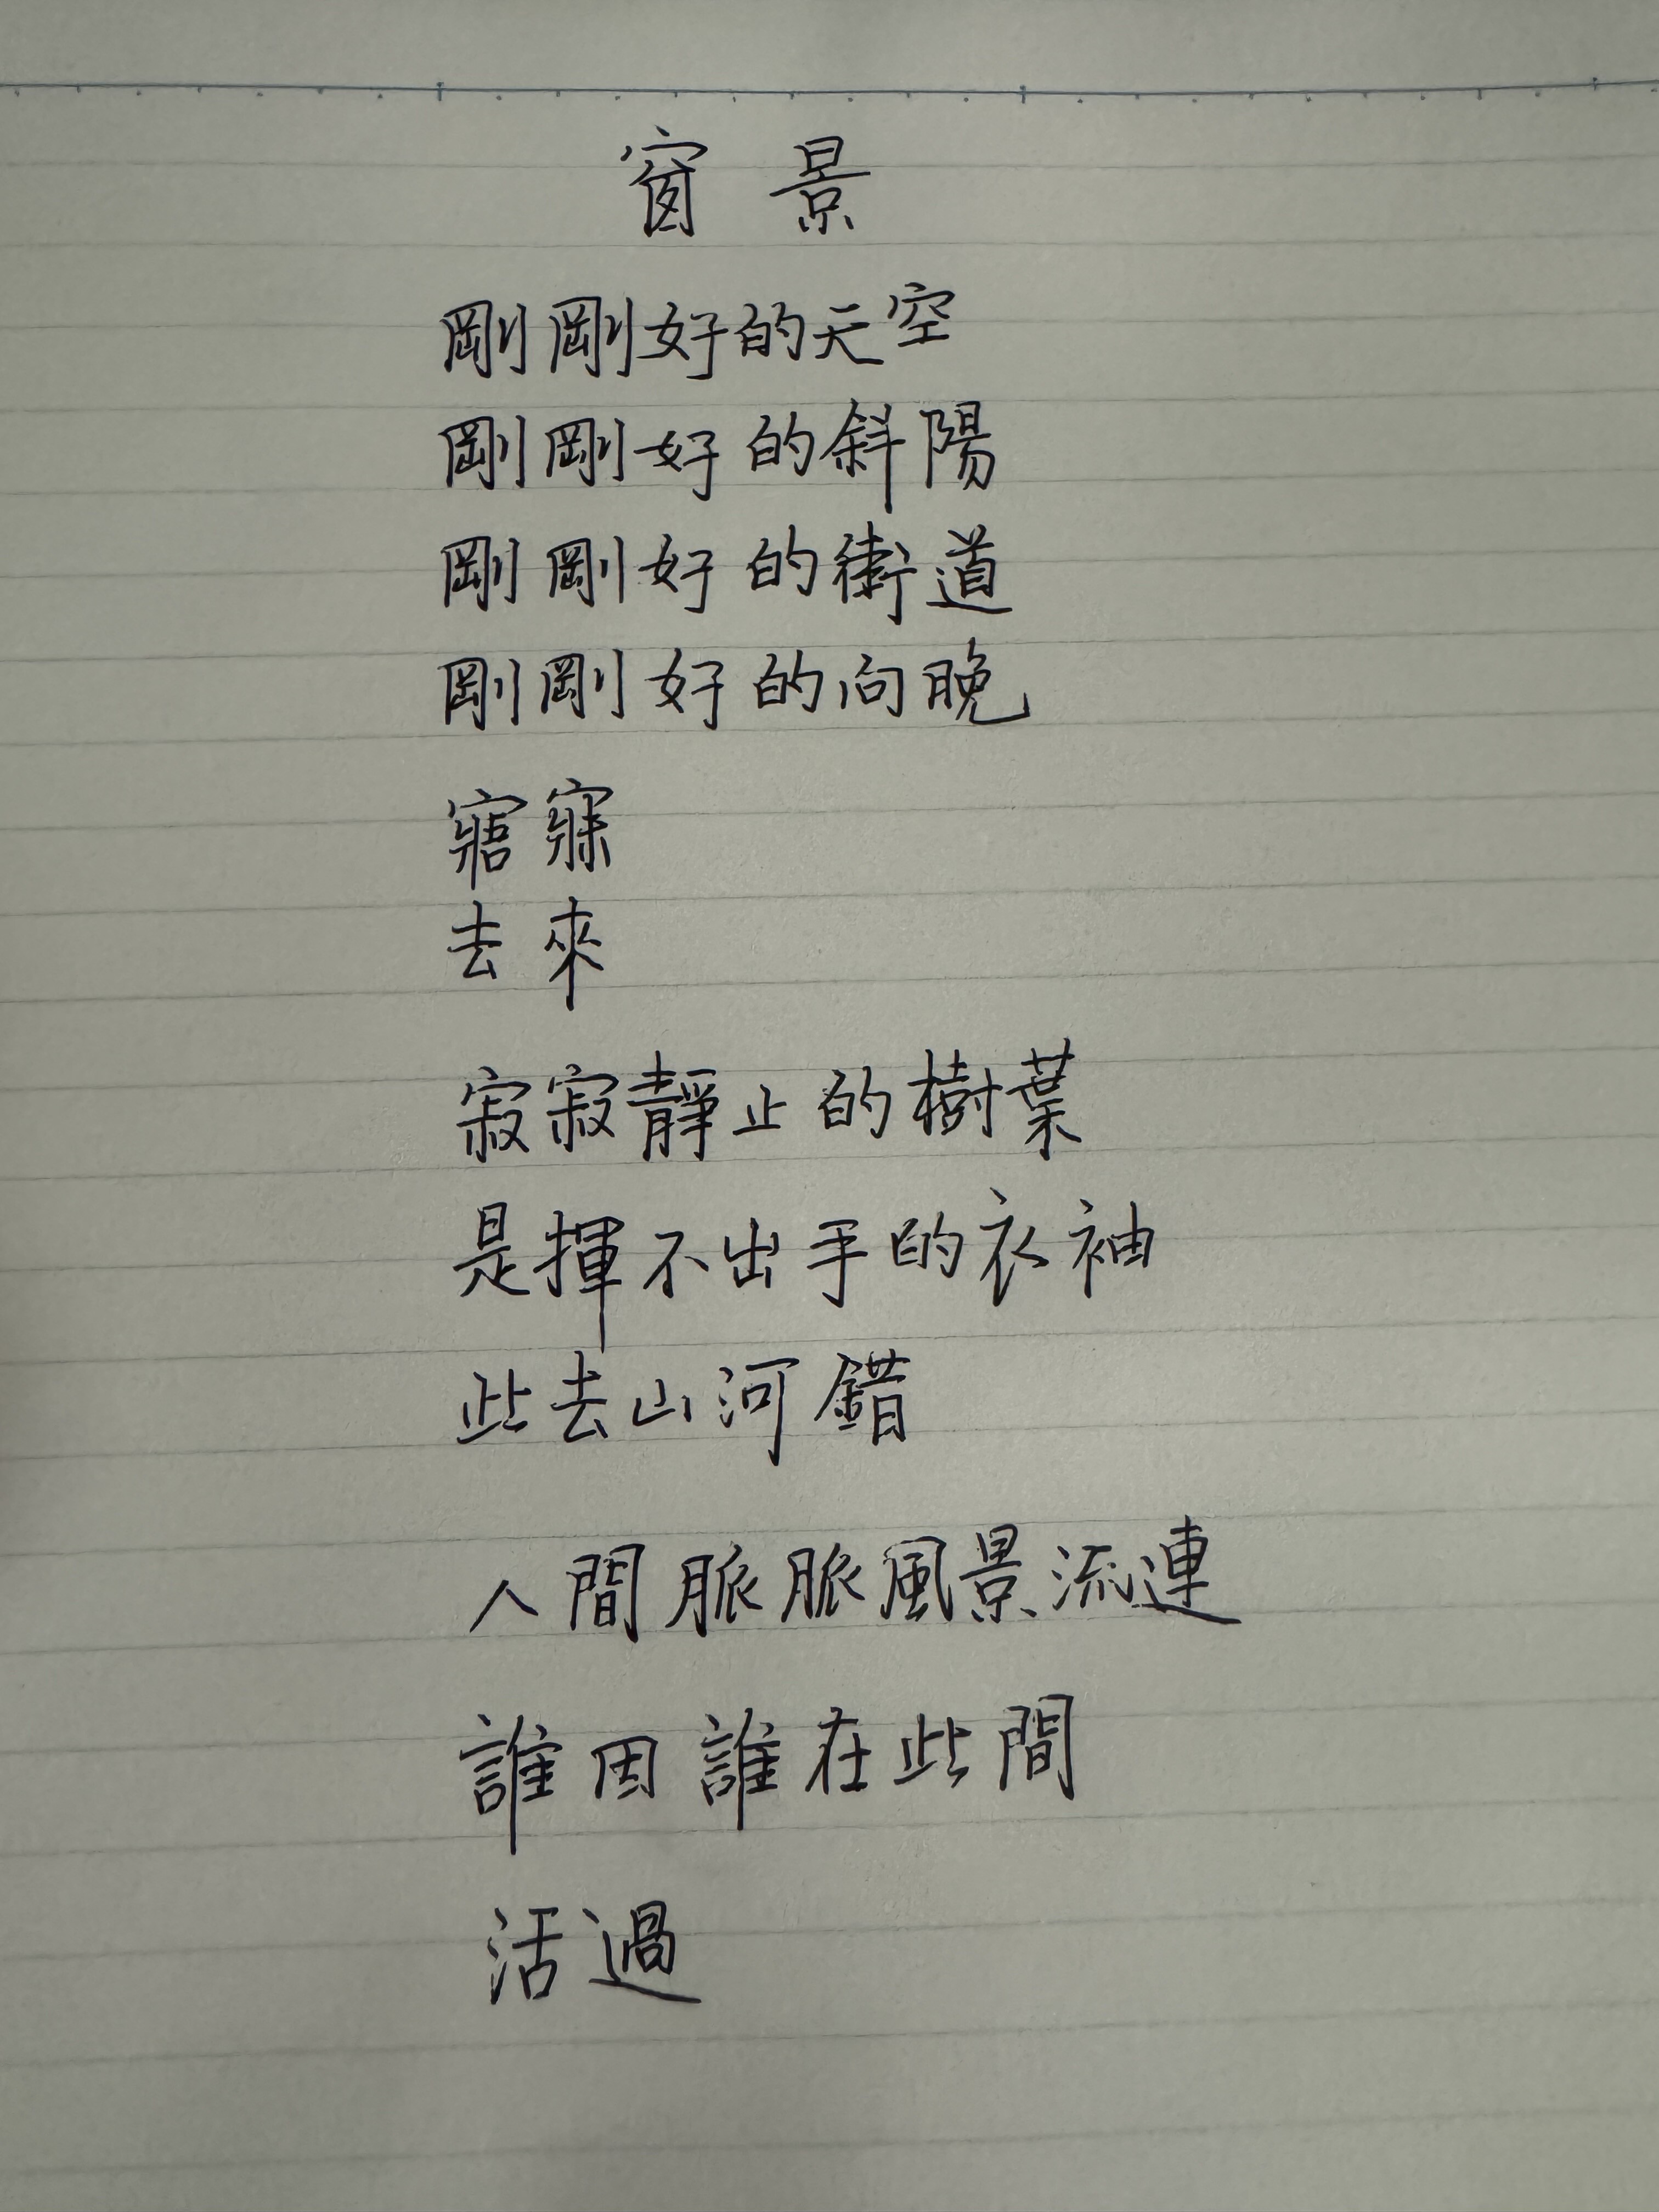 窗景
剛剛好的天空
剛剛好的斜陽
剛剛好的街道
剛剛好的向晚
寤寐
去來
寂寂靜止的樹葉
是揮不出手的衣袖
此去山河錯
人間脈脈風景流連
誰因誰在此間
活過